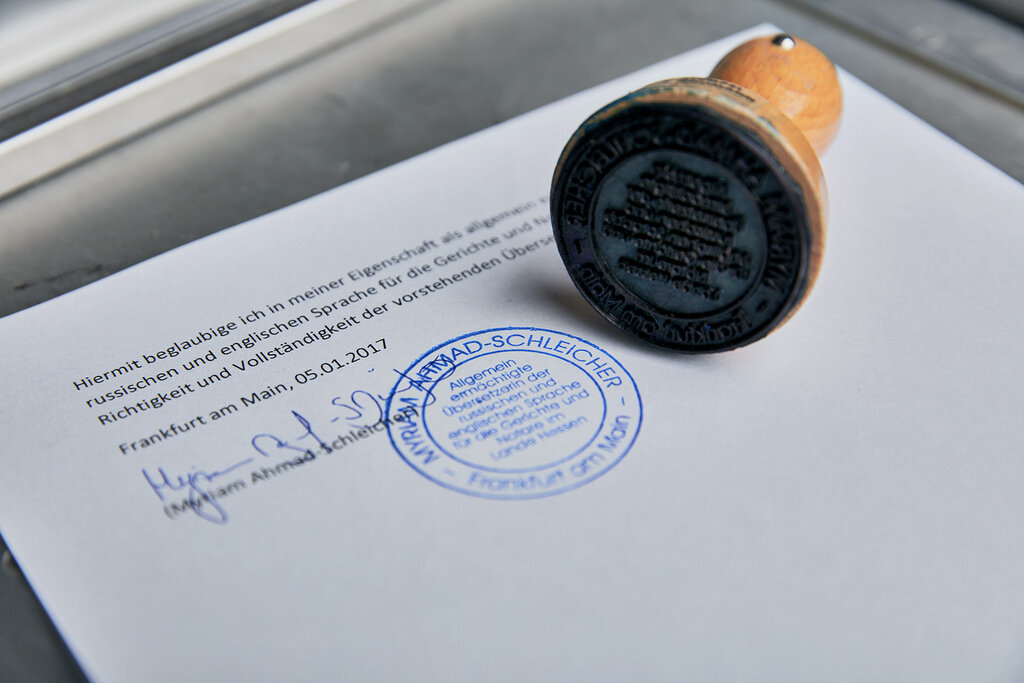 Hiermit beglaubige ich in meiner Eigenschaft als allgemein
russischen und englischen Sprache für die Gerichte und
Richtigkeit und Vollständigkeit der vorstehenden
Frankfurt am Main, 05.01.2017
(Myriam Ahmad-Schleicher)
MYRIAM AHMAD-SCHLEICHER
Allgemein
ermächtigte
Übersetzerin der
russischen und
englischen Sprache
für die Gerichte und
Notare im
Lande Hessen
– Frankfurt am Main –